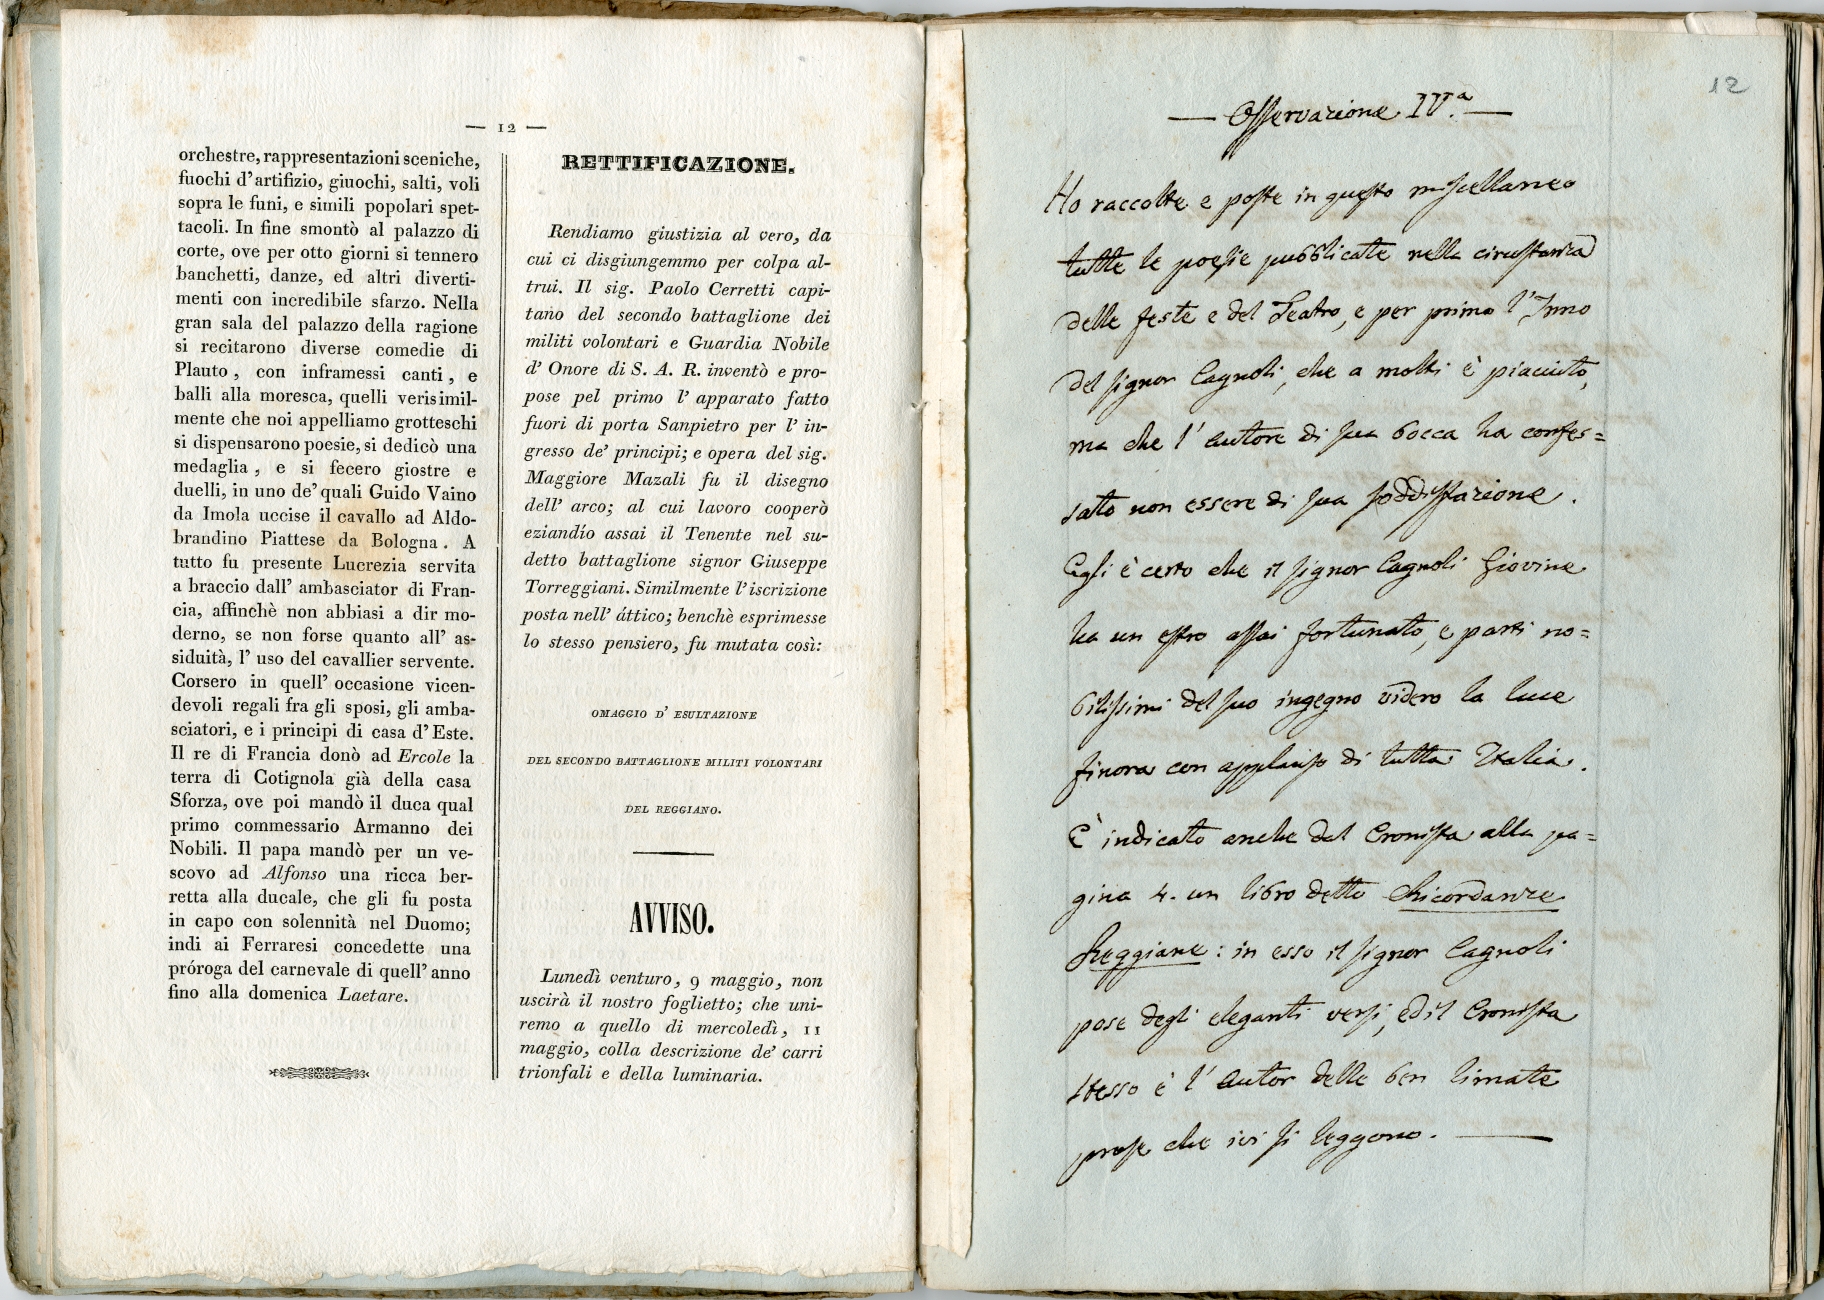 — 12 —
orchestre, rappresentazioni sceniche,
fuochi d'artifizio, giuochi, salti, voli
sopra le funi, e simili popolari spet-
tacoli. In fine smontò al palazzo di
corte, ove per otto giorni si tennero
banchetti, danze, ed altri diverti-
menti con incredibile sfarzo. Nella
gran sala del palazzo della ragione
si recitarono diverse comedie di
Plauto, con inframessi canti, e
balli alla moresca, quelli verisimil-
mente che noi appelliamo grotteschi
si dispensarono poesie, si dedicò una
medaglia, e si fecero giostre e
duelli, in uno de' quali Guido Vaino
da Imola uccise il cavallo ad Aldo-
brandino Piattese da Bologna. A
tutto fu presente Lucrezia servita
a braccio dall' ambasciator di Fran-
cia, affinchè non abbiasi a dir mo-
derno, se non forse quanto all' as-
siduità, l' uso del cavallier servente.
Corsero in quell' occasione vicen-
devoli regali fra gli sposi, gli amba-
sciatori, e i principi di casa d' Este.
Il re di Francia donò ad Ercole la
terra di Cotignola già della casa
Sforza, ove poi mandò il duca qual
primo commessario Armanno dei
Nobili. Il papa mandò per un ve-
scovo ad Alfonso una ricca ber-
retta alla ducale, che gli fu posta
in capo con solennità nel Duomo;
indi ai Ferraresi concedette una
próroga del carnevale di quell' anno
fino alla domenica Laetare.
RETTIFICAZIONE.
Rendiamo giustizia al vero, da
cui ci disgiungemmo per colpa al-
trui. Il sig. Paolo Cerretti capi-
tano del secondo battaglione dei
militi volontari e Guardia Nobile
d' Onore di S. A. R. inventò e pro-
pose pel primo l' apparato fatto
fuori di porta Sanpietro per l' in-
gresso de' principi; e opera del sig.
Maggiore Mazali fu il disegno
dell' arco; al cui lavoro cooperò
eziandío assai il Tenente nel su-
detto battaglione signor Giuseppe
Torreggiani. Similmente l' iscrizione
posta nell' áttico; benchè esprimesse
lo stesso pensiero, fu mutata così:
OMAGGIO D' ESULTAZIONE
DEL SECONDO BATTAGLIONE MILITI VOLONTARI
DEL REGGIANO.
AVVISO.
Lunedì venturo, 9 maggio, non
uscirà il nostro foglietto; che uni-
remo a quello di mercoledì, 11
maggio, colla descrizione de' carri
trionfali e della luminaria.
12
— Osservazione IV.ª —
Ho raccolte e poste in questo miscellaneo
tutte le poesie pubblicate nella circostanza
delle feste e del Teatro, e per primo l' Inno
del signor Cagnoli, che a molti è piaciuto,
ma che l' autore di sua bocca ha confes=
sato non essere di sua soddisfazione.
Egli è certo che il signor Cagnoli Giovine
ha un estro assai fortunato, e parti no=
bilissimi del suo ingegno videro la luce
finora con applauso di tutta Italia.
È indicato anche dal Cronista alla pa=
gina 4. un libro detto Ricordanze
Reggiane: in esso il signor Cagnoli
pose degli eleganti versi, ed il Cronista
stesso è l' autor delle ben limate
prose che ivi si leggono. —